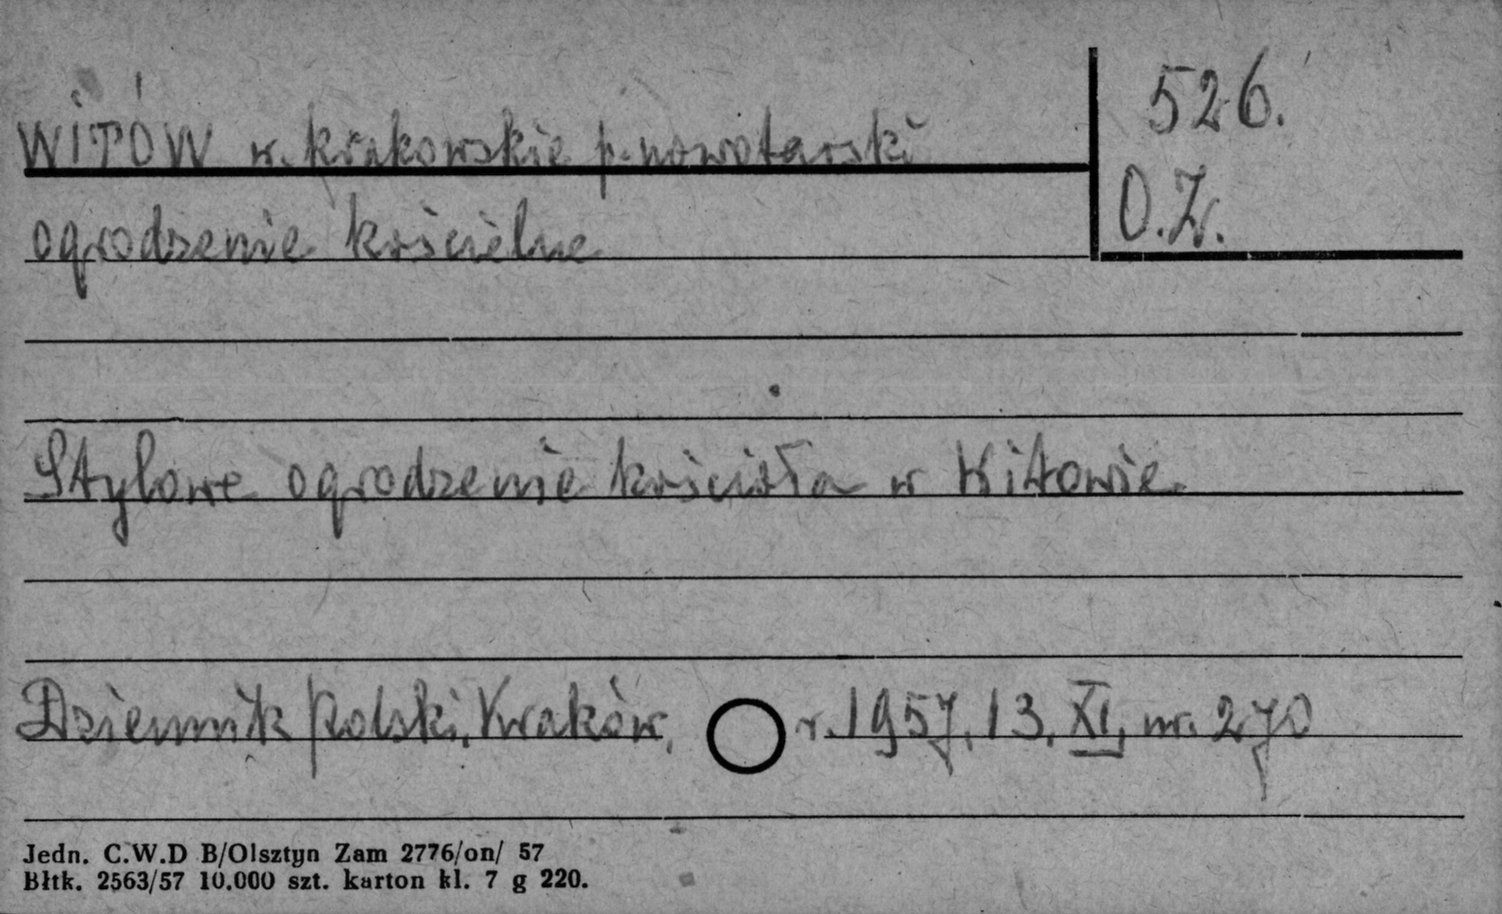 WITÓW w. krakowskie p. nowotarski
526.
O.Z.
ogrodzenie kościelne
Stylowe ogrodzenie kościoła w Witowie.
Dziennik Polski, Kraków, r. 1957, 13. XI, nr. 270
Jedn. C.W.D B/Olsztyn Zam 2776/on/ 57
Błtk. 2563/57 10.000 szt. karton kl. 7 g 220.